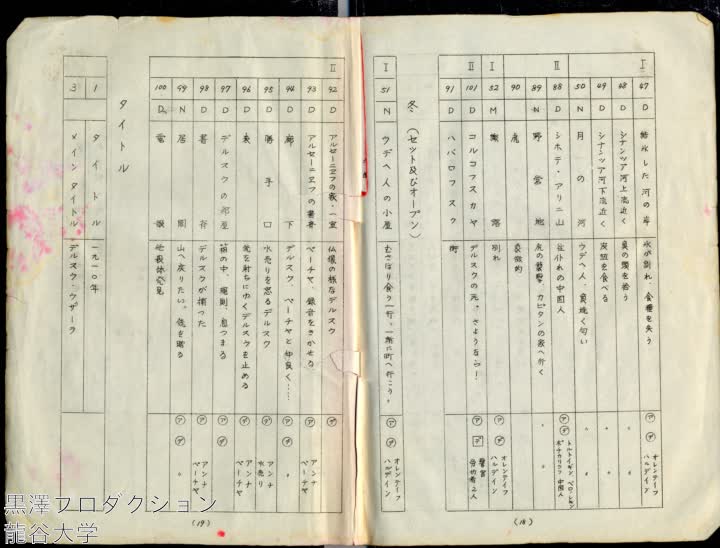 I 47 D 結氷した河の岸 氷が割れ、食糧を失う ア デ オレンテーフ ハルデイン
48 D シナンツア河上流近く 魚の頭を拾う
49 D シナンツア河下流近く 皮紐を食べる
50 N 月の河 ウデヘ人、魚焼く匂い
II 88 D シホテ・アリニ山 仕仆れの中国人 ア デ 中国人
89 N 野営地 虎の襲撃、カピタンの家へ行く
90 虎 象徴的
I 52 M 別れ ア デ オレンテーフ ハルデイン
II 101 D コルフォフスカヤ デルスウの死、さようなら! ア デ 警官
91 D ハバロフスク 町
冬(セット及びオープン)
I 51 N ウデヘ人の小屋 むさぼり食う一行。一緒に町へ行こう。 ア デ オレンテーフ ハルデイン
(18)
II 92 D アルセーニエフの家・一室 仏像の様なデルスウ デ
93 D アルセーニエフの書斎 ペーチャ、録音をきかせる ア デ アンナ ペーチャ
94 D 廊下 デルスウ、ペーチャと仲良く…… ア デ
95 D 勝手口 水売りを怒るデルスウ デ アンナ 水売り
96 D 表 銃を射ちにゆくデルスウを止める デ アンナ ペーチャ
97 D デルスウの部屋 箱の中、規則、息つまる ア デ
98 D 書斎 デルスウが捕った ア アンナ ペーチャ
99 N 居間 山へ戻りたい。銃を贈る ア デ 〃
100 D 電報 他殺体発見
タイトル
1 タイトル 一九一〇年
3 メインタイトル デルスウ・ウザーラ
(19)
黒澤プロダクション
龍谷大学